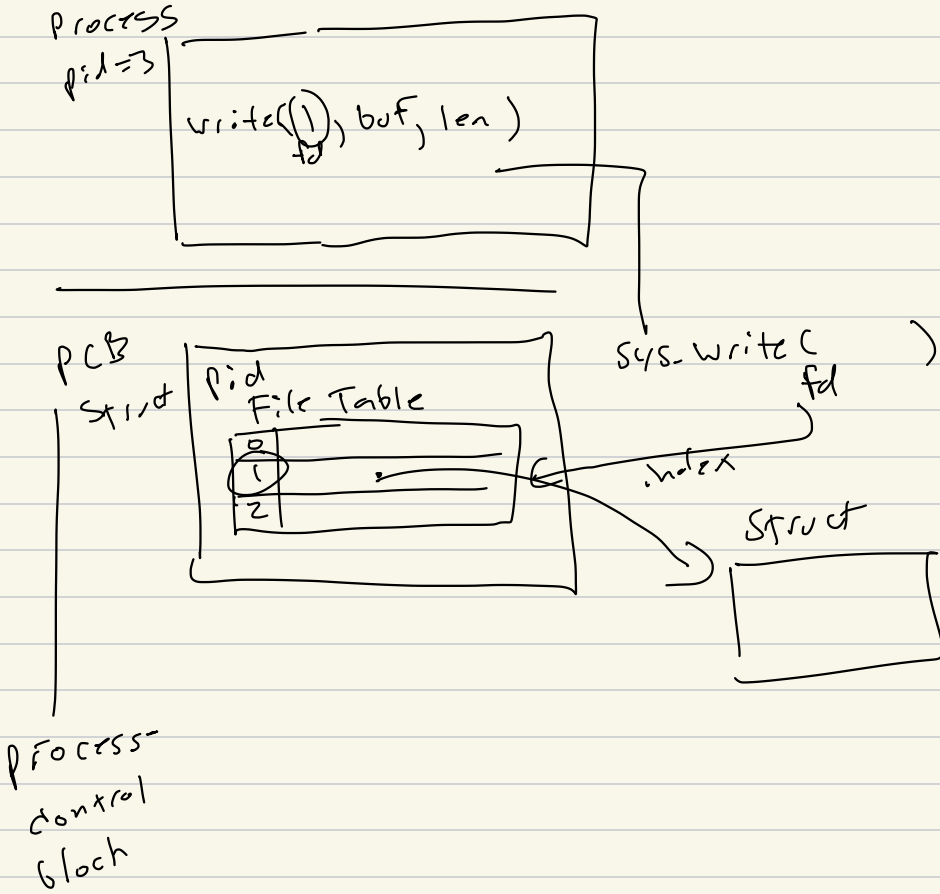 Process
pid=3
write(1, buf, len)
fd
PCB
Struct
pid
File Table
0
1
2
sys_write( )
fd
index
Struct
process-
control
bloch